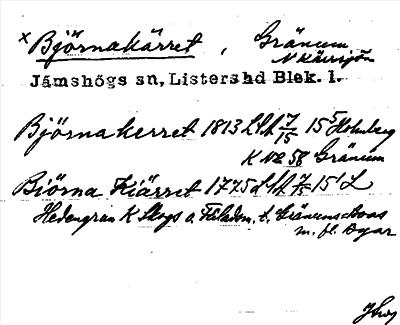 × Björnakärret, Gränum
N Kärrsjön
Jämshögs sn, Listers hd Blek. l.
Björnakerret 1813 LSA 7/15 15⁵ Holmberg
K N2 58 Gränum
Biörna Kiärret 1775 LSA 7/15 15¹ L
Hedengran K Skogs o. Fäladsm. t. Gränums boas
m. fl. ägor